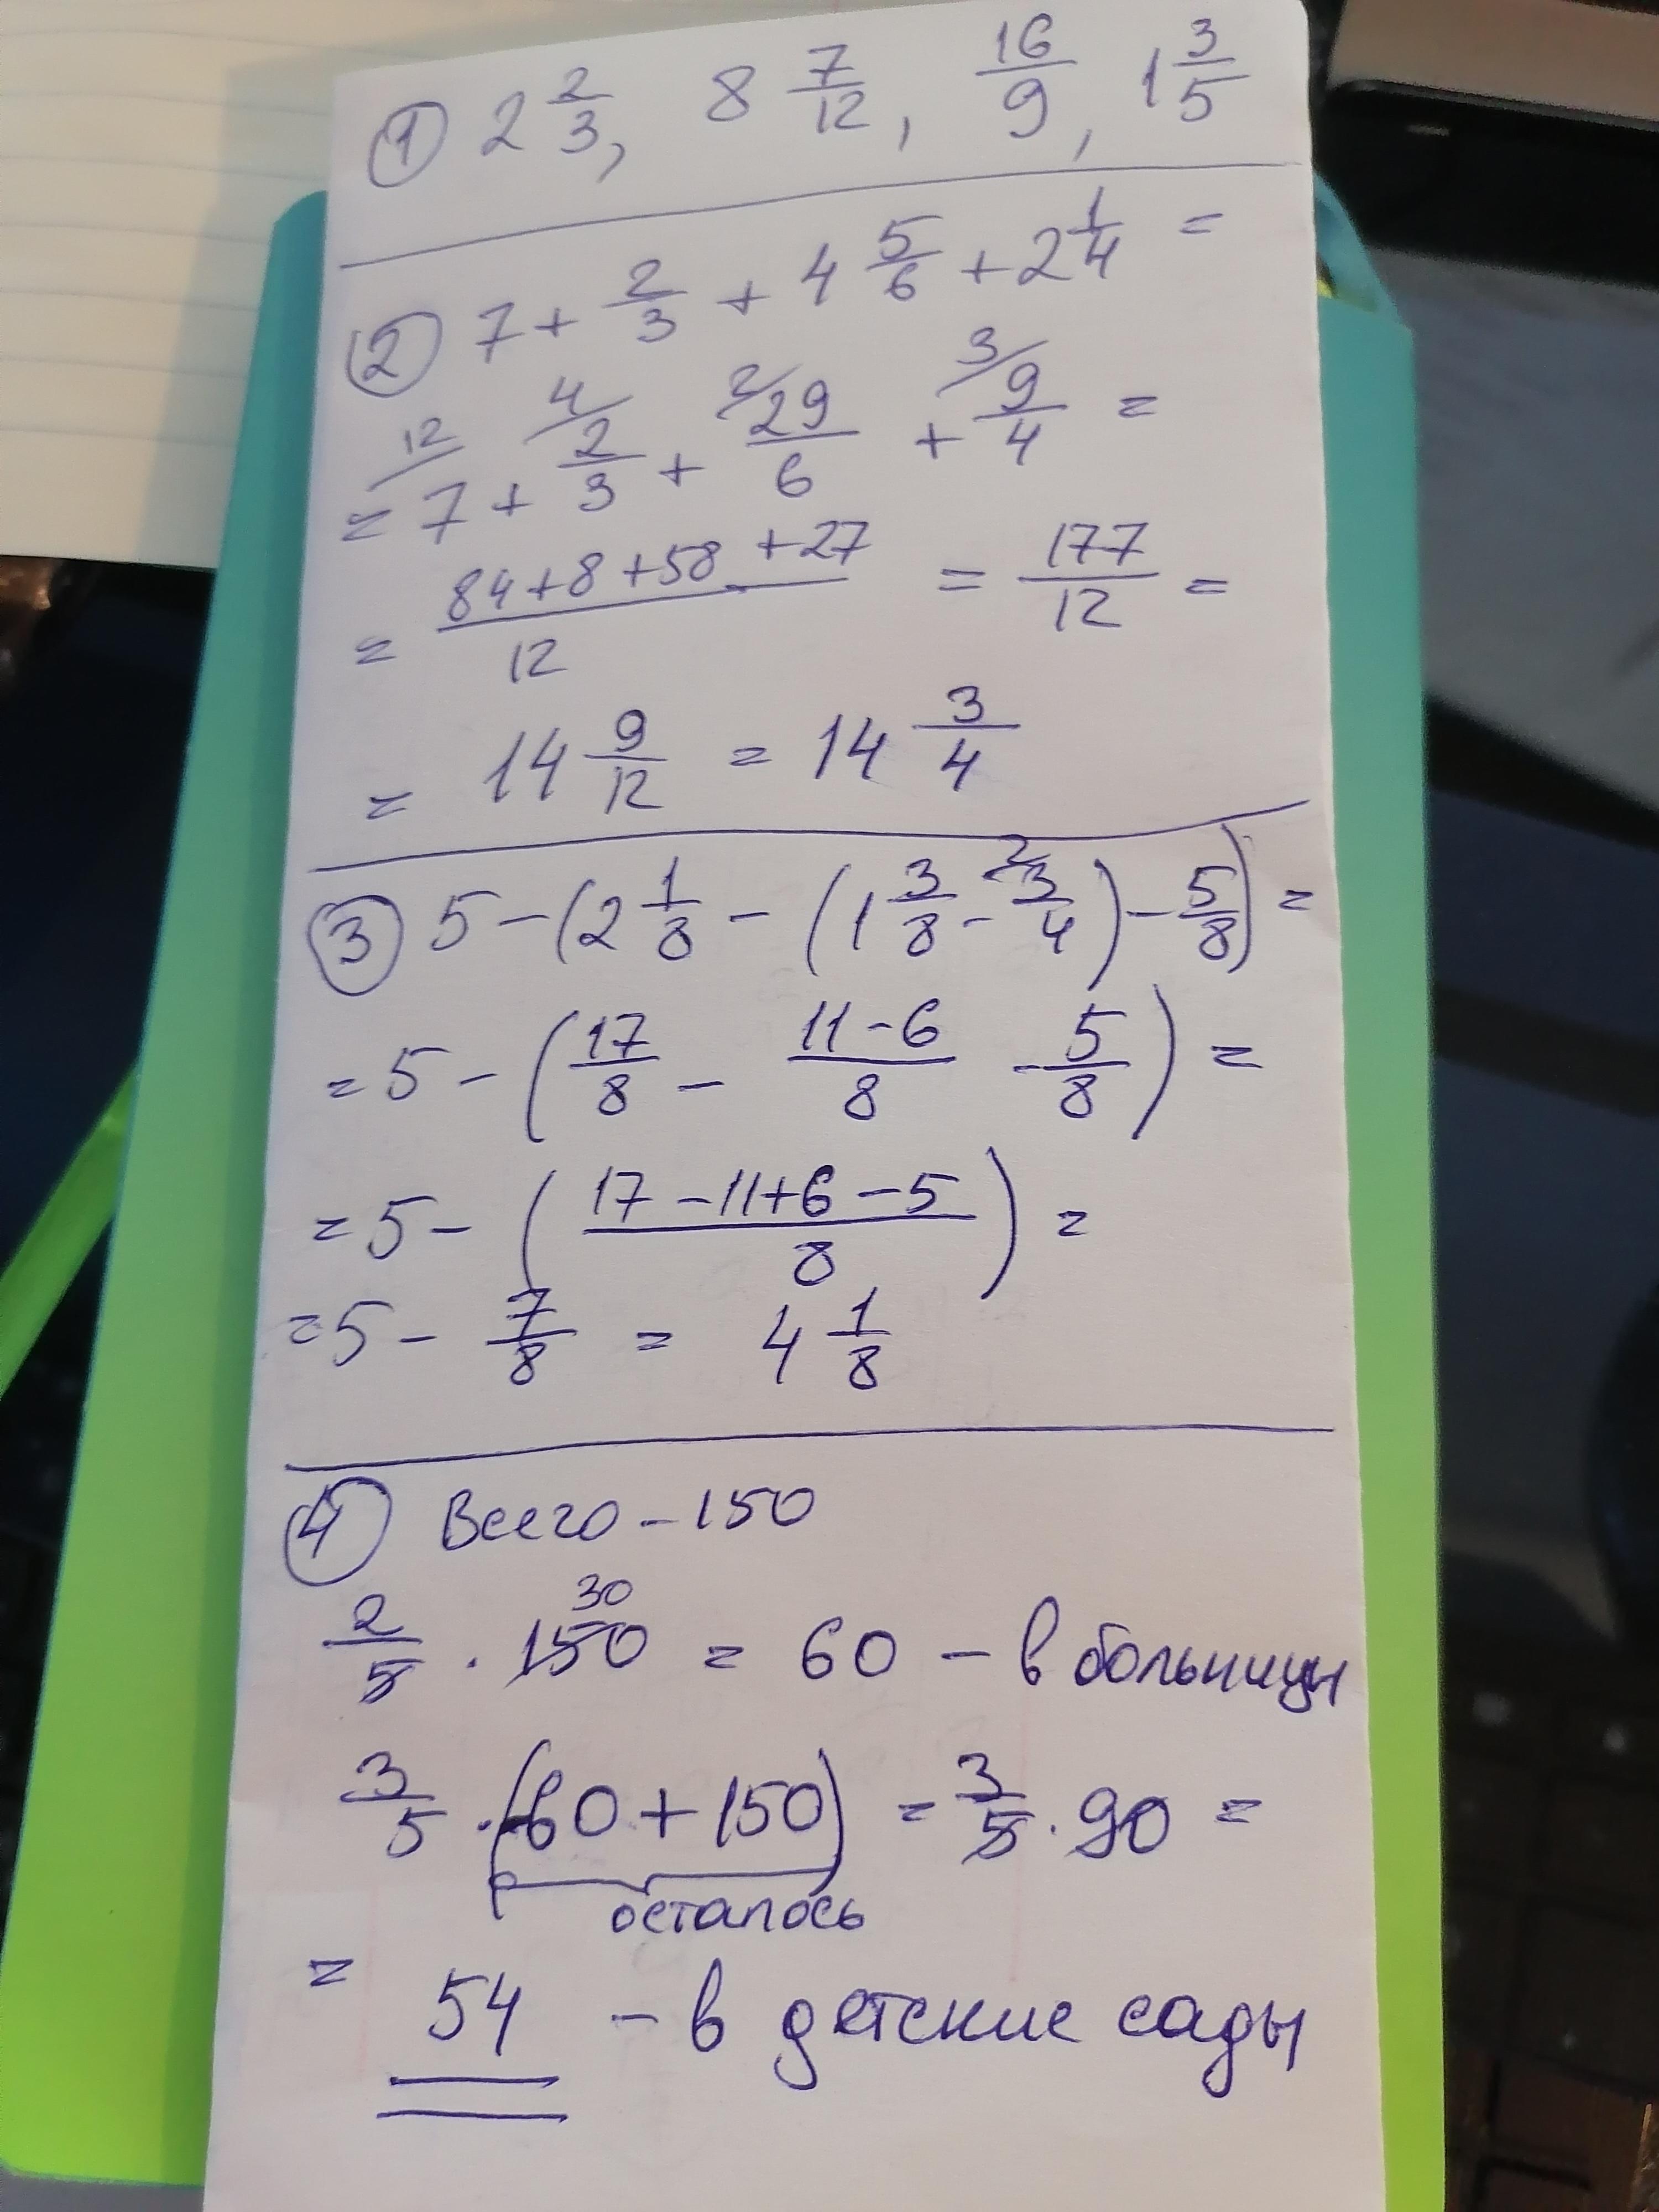 ① 2 2/3, 8 7/12, 16/9, 1 3/5
② 7 + 2/3 + 4 5/6 + 2 1/4 =
12/ 4/ 2/ 3/
= 7 + 2/3 + 29/6 + 9/4 =
= (84+8+58+27)/12 = 177/12 =
= 14 9/12 = 14 3/4
③ 5 - (2 1/8 - (1 3/8 - 2/ 3/4) - 5/8) =
= 5 - (17/8 - (11-6)/8 - 5/8) =
= 5 - ((17-11+6-5)/8) =
= 5 - 7/8 = 4 1/8
④ Всего - 150
30
2/5 · 150 = 60 - в больницы
3/5 · (-60 + 150) = 3/5 · 90 =
осталось
= 54 - в детские сады